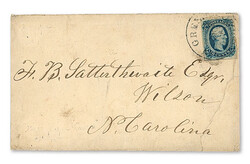 F. B. Satterthwaite Esqr,
Wilson
N. Carolina